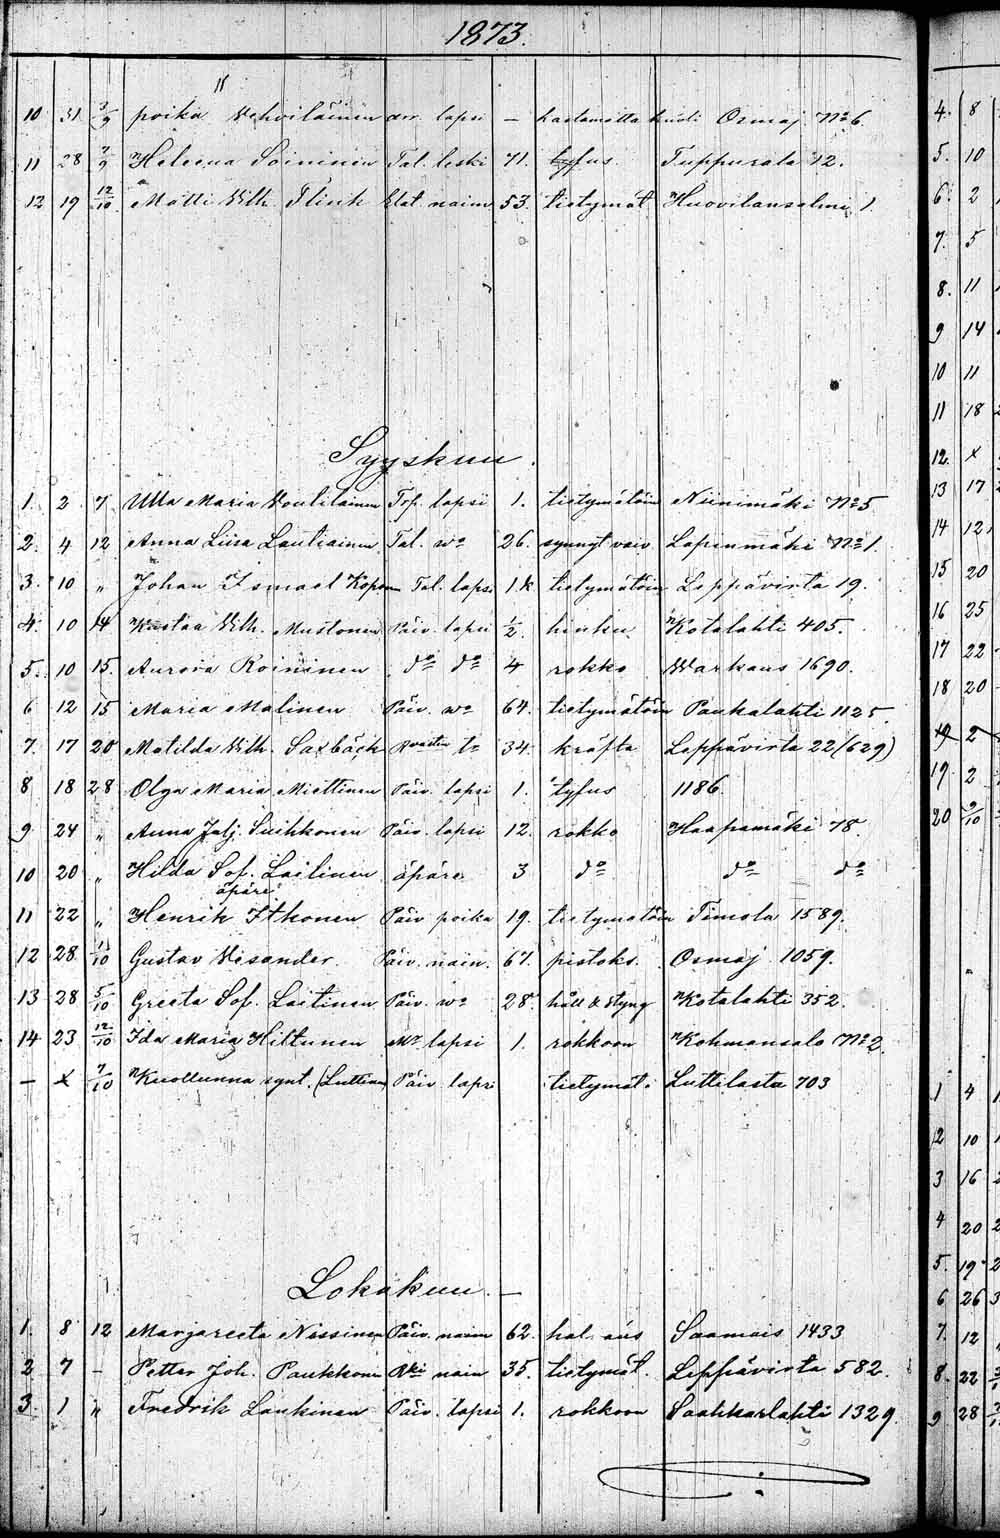 1873.
"
10 31 3/9 poika Vehviläinen arr. lapsi — hastamatta kuoli Osmaj. No 6.
11 28 7/9 Heleena Soininen Tal. leski 71. tyfus Tuppurala 12.
12 19 12/10 Matti Vilh. Flink Elat. naim 53. tietymät Huovilansalmi 1.
Syyskuu.
1. 2 7 Ulla Maria Voutilainen Trp. lapsi 1. tietymätöin Niinimäki No 5
2. 4 12 Anna Liisa Lautiainen Tal. wo 26. synnyt. vaiv. Lapinmäki No 1.
3. 10 " Johan Ismael Koponen Tal. lapsi 1 k. tietymätöin Leppävirta 19.
4. 10 14 Kustaa Vilh. Mustonen Päiv. lapsi 1/2. hinku Kotalahti 405.
5. 10 15. Aurora Roininen do do 4 rokko Warkaus 1690.
6 12 15 Maria Malinen Päiv. wo 64. tietymätöin Paukalahti 1125.
7. 17 20 Matilda Vilh. Saxbäck 34. kräfta Leppävirta 22/629)
8 18 28 Olga Maria Miettinen Päiv. lapsi 1. tyfus 1186
9 24 " Anna Julj. Suihkonen Päiv. lapsi 12. rokko Haapamäki 78.
10 20 " Hilda Sof. Lailinen äpäre 3 do do do
äpäre
11 22 " Henrik Itkonen Päiv poika 19. tietymätöin Timola 1589.
12 28 1/10 Gustav Vesander. Päiv. naim. 67. pistoks. Osmaj. 1059.
13 28 5/10 Greeta Sof. Laitinen Päiv. wo 28. håll & styng Kotalahti 352.
14 23 12/10 Ida Maria Hiltunen Mr. lapsi 1. rokkoon Kohmansalo No 2
— x 7/10 Kuollunna synt. (Luttinen Päiv. lapsi tietymät. Luttilasta 703
Lokakuu. —
1. 8 12 Margareeta Nissinen Päiv. naim 62. hal. aus Saamais 1433
2 7 — Petter Joh. Paukkonen Rki naim 35. tietymät. Leppävirta 582.
3 1 " Fredrik Lankinen Päiv. lapsi 1. rokkoon Saahkarlahti 1329.
4. 8
5. 10
6. 2
7. 5
8. 11
9 14
10 11
11 18
12. x
13 17
14 12
15 20
16 25
17 22
18 20
19 2
19. 2
20 9/10
1 4
2 10
3 16
4 20
5. 19
6 26
7. 12
8. 22
9 28